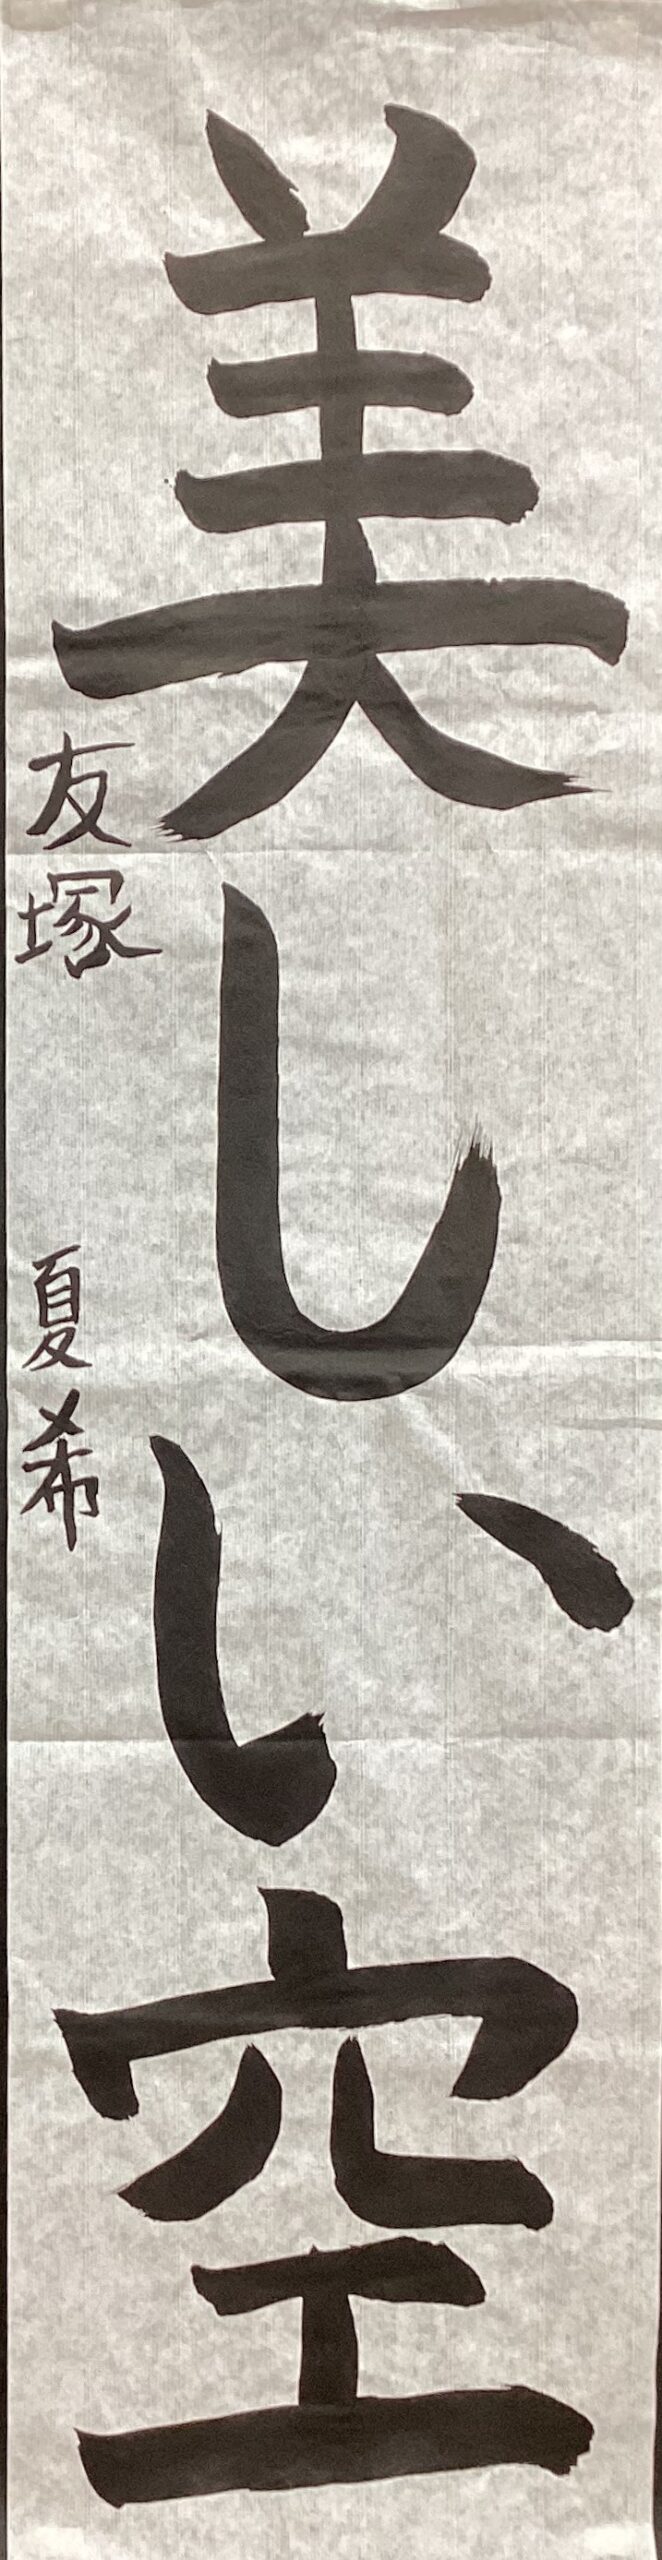 美しい空
友塚 夏希